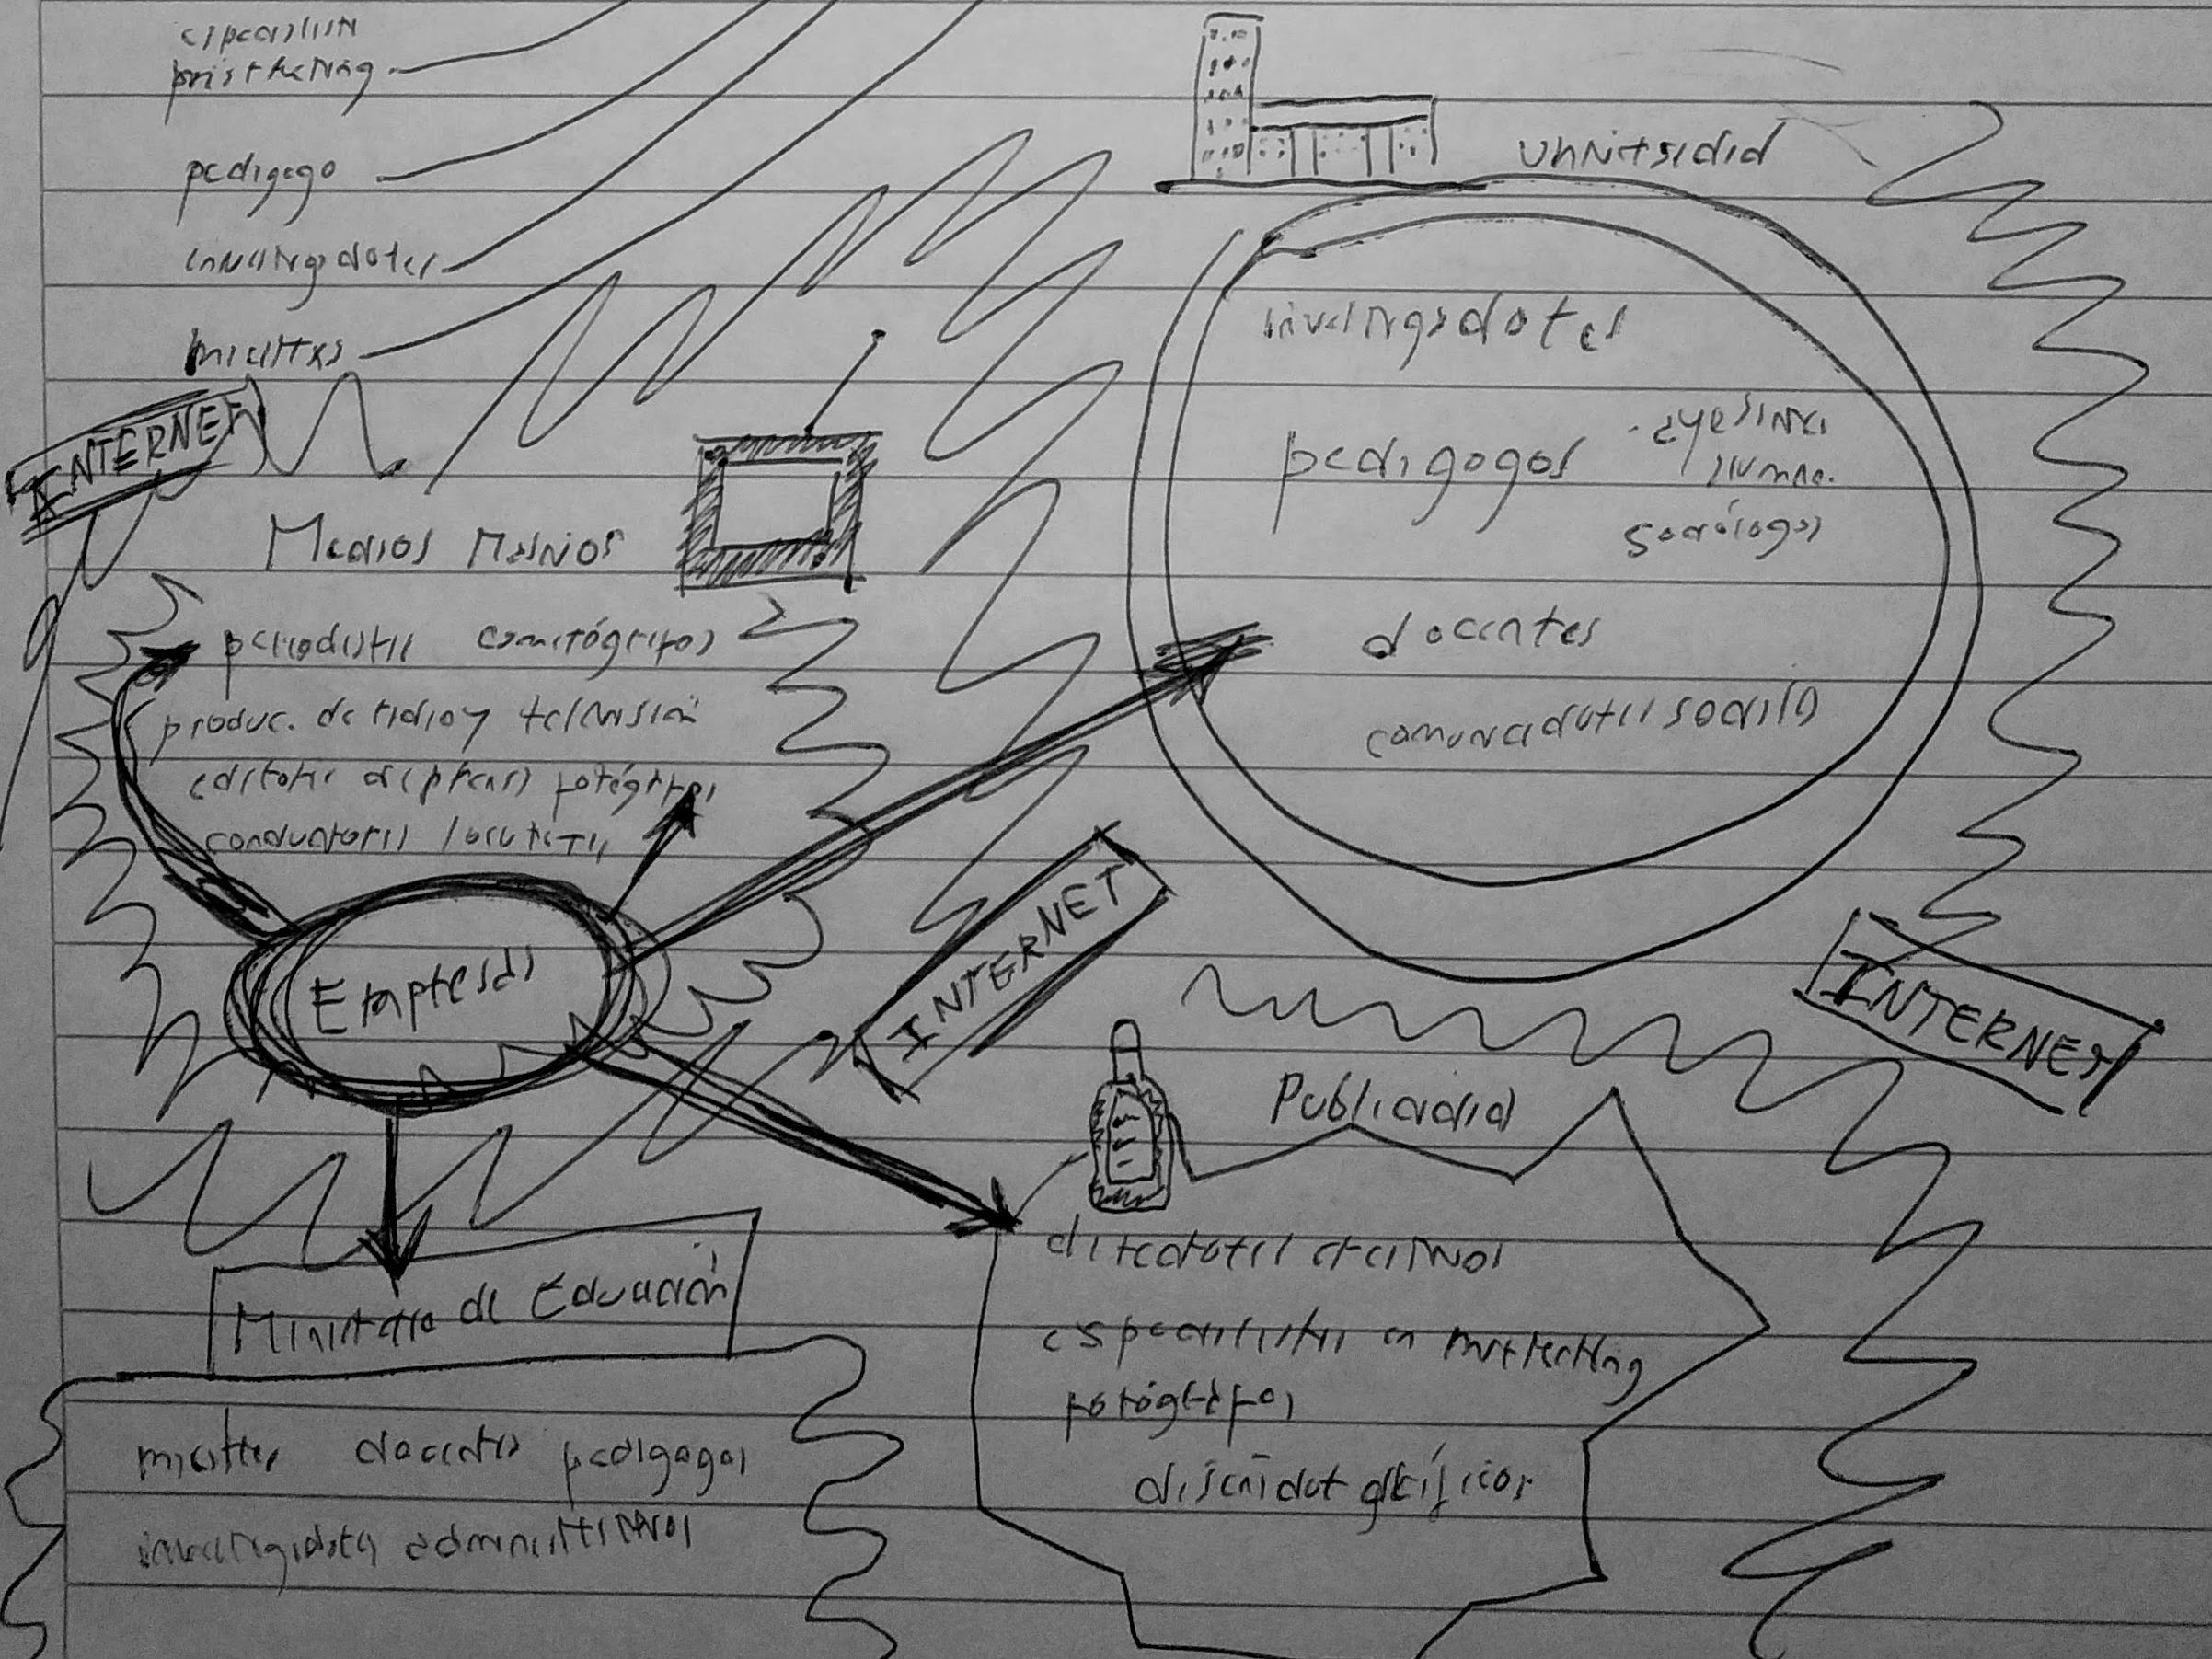 especialista
marketing
pedagogo
investigadores
maestros
INTERNET
Medios Masivos
periodistas camarógrafos
produc. de radio y television
editores de prensa fotógrafos
conductores locutores
Empresas
INTERNET
Ministerio de Educación
maestros docentes pedagogos
investigadores administrativos
universidad
investigadores
pedagogos
alumno.
sociólogos
docentes
comunicadores sociales
INTERNET
Publicidad
directores creativos
especialistas en marketing
fotógrafos
diseñador gráficos